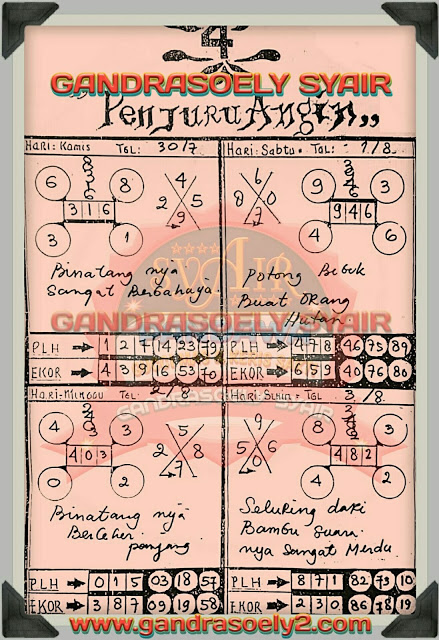 4
GANDRASOELY SYAIR
"Penjuru Angin,,
Hari: Kamis TGL: 30/7
6 8
3 1 6
3 1
4
2 5
9
Binatang nya
Sangat Berbahaya.
PLH 1 2 7 14 23 79
EKOR 4 3 9 16 53 70
Hari: Sabtu. TGL: 1/8.
9 3
9 4 6
4 6
6
8 0
7
Potong Bebek
Buat ORang
Hutan
PLH 4 7 8 46 75 89
EKOR 6 5 9 40 76 80
SYAIR
GANDRASOELY SYAIR
Hari-Minggu TGL: 2/8
4 3
4 0 3
0 2
5
2 8
7
Binatang nya
BerLeher
panjang
PLH 0 1 5 03 18 57
EKOR 3 8 7 09 19 58
Hari: Senin = TGL 3/8.
8 2
4 8 2
4 2
9
5 0
6
Seluring dari
Bambu Suara
nya Sangat Merdu
PLH 8 7 1 82 79 10
EKOR 2 3 0 86 78 19
GANDRASOELY SYAIR
www.gandrasoely2.com